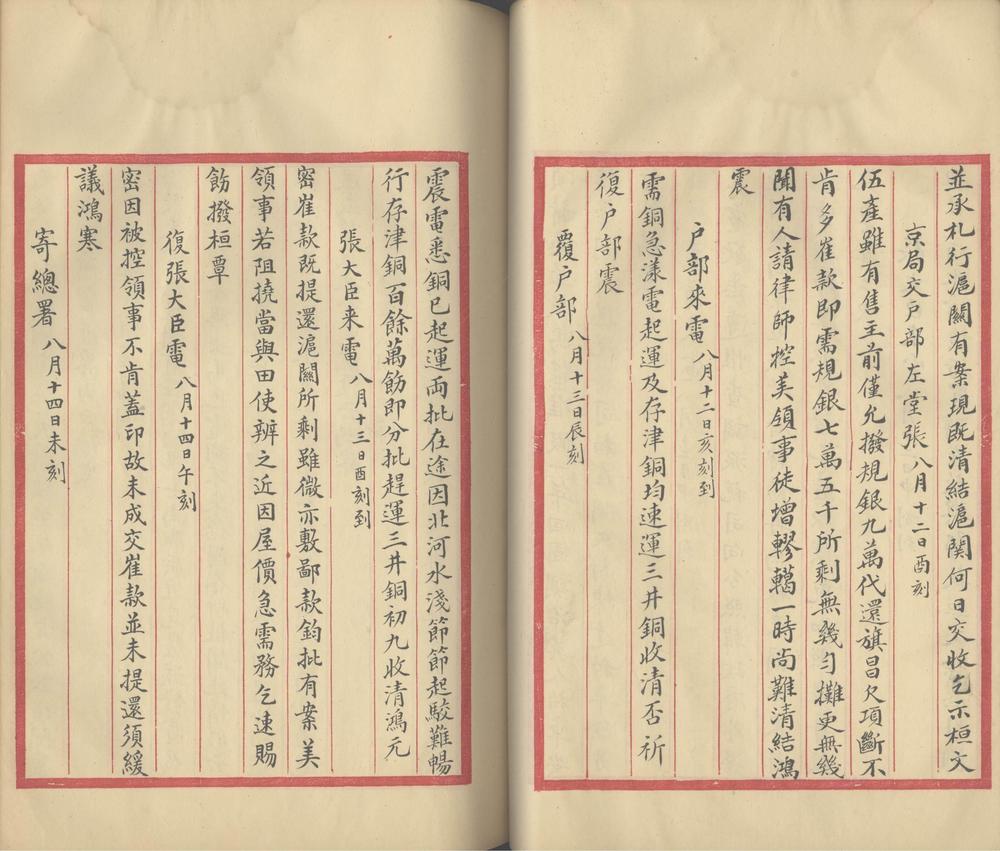 並承札行滬關有案現既清結滬関何日交收乞示桓文
京局交户部左堂張 八月十二日酉刻
伍產雖有售主前僅允撥規銀九萬代還旗昌欠項斷不
肯多崔款即需規銀七萬五千所剩無幾匀攤更無幾
聞有人請律師控美領事徒增轇轕一時尚難清結鴻
震
户部來電 八月十二日亥刻到
需銅急漾電起運及存津銅均速運三井銅收清否祈
復户部震
覆户部 八月十三日辰刻
震電悉銅已起運両批在途因北河水淺節節起駁難暢
行存津銅百餘萬觔即分批趕運三井銅初九收清鴻元
張大臣来電 八月十三日酉刻到
密崔款既提還滬關所剩雖微亦敷鄙款鈞批有案美
領事若阻撓當與田使辨之近因屋價急需務乞速賜
飭撥桓覃
復張大臣電 八月十四日午刻
密因被控領事不肯蓋印故未成交崔款並未提還須緩
議鴻寒
寄總署 八月十四日未刻